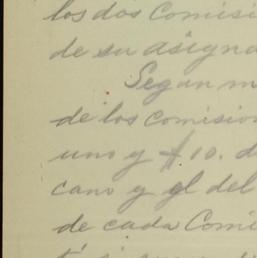 los dos Comisi
de su asigna
Segun m
de los Comision
uno y $.10. d
cano y el del
de cada Comi